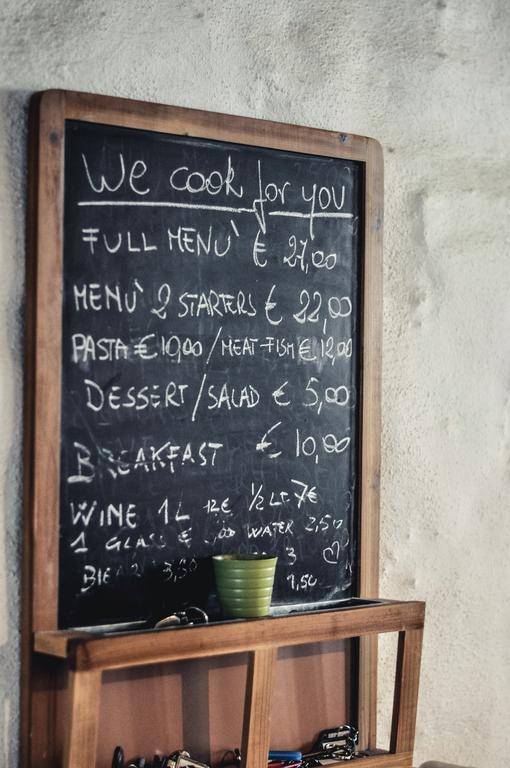 We cook for you
FULL MENU` € 27,00
MENU` 2 STARTERS € 22,00
PASTA € 10,00 / MEAT-FISH € 12,00
DESSERT / SALAD € 5,00
BREAKFAST € 10,00
WINE 1L 12€ 1/2 LT 7€
1 GLASS € ,00 WATER 2,50
3,50 3
1,50